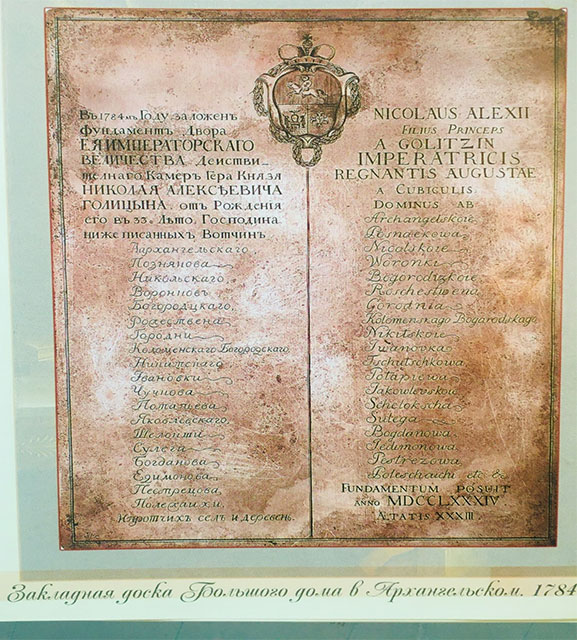 Въ 1784 мъ Году заложенъ
фундаментъ Двора
ЕЯ ИМПЕРАТОРСКАГО
ВЕЛИЧЕСТВА Деистви_
телнаго Камеръ Гера Князя
НИКОЛАЯ АЛЕКСѢЕВИЧА
ГОЛИЦЫНА, отъ Рождения
его въ 33: Лѣто. Господина
ниже писанныхъ Вотчинъ
Архангельскаго
Познякова
Никольскаго
Воронковъ
Богородцкаго,
Рожествена
Городни
Коломенскаго Богородского
Никитскаго
Ивановки
Чучкова
Потапьева
Яковлевскаго
Шелокши
Сулега
Богданова
Едимонова
Пестрецова
Полехаихи
И протчихъ селъ и деревень.
NICOLAUS ALEXII
Filius Princeps
A GOLITZIN
IMPERATRICIS
REGNANTIS AUGUSTAE
a Cubiculis
Dominus ab
Archangelskoie
Posnaekowa
Nicolskoie
Woronki
Bogorodizkoie
Roschestwena
Gorodnia
Kolomenskago Bogorodskago
Nikitskoie
Iwanowka
Tschutschkowa
Potapiewa
Iakowlevskoie
Schelokscha
Sulega
Bogdanowa
Iedimonowa
Pestrezowa
Poleschaichi etc &
Fundamentum posuit
anno MDCCLXXXIV
Ætatis XXXIII.
Закладная доска Большого дома в Архангельском. 1784